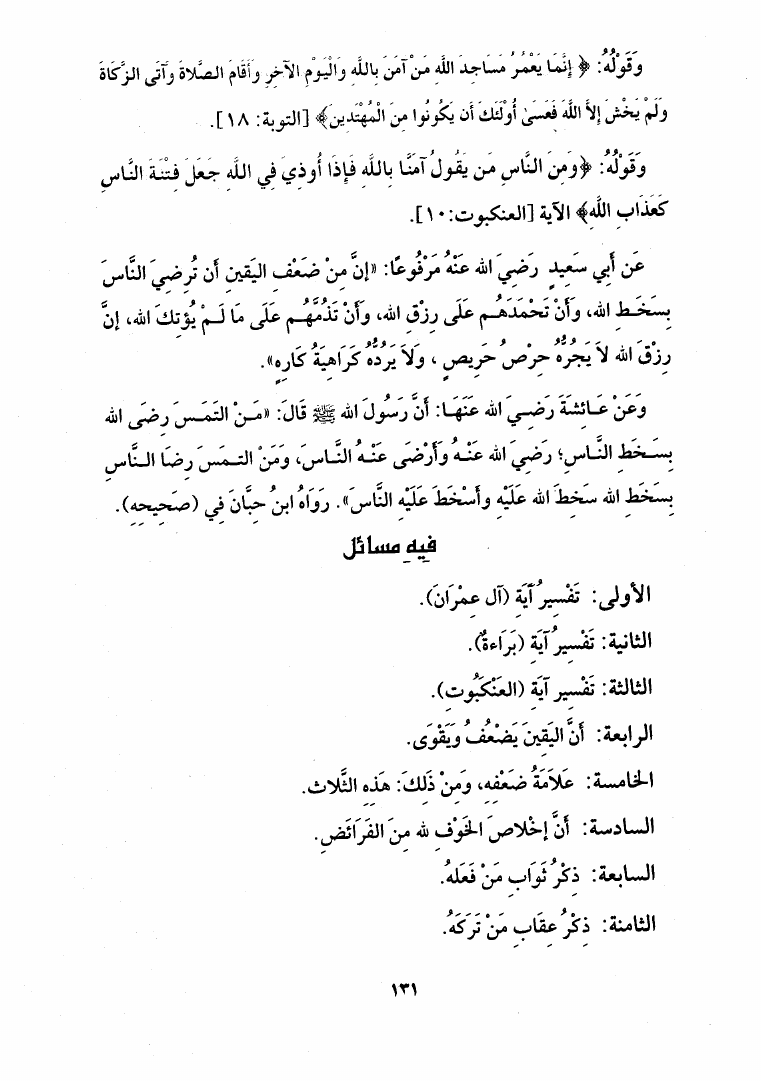 وَقَوْلُهُ: ﴿ إِنَّمَا يَعْمُرُ مَسَاجِدَ اللَّهِ مَنْ آمَنَ بِاللَّهِ وَالْيَوْمِ الآخِرِ وَأَقَامَ الصَّلاةَ وَآتَى الزَّكَاةَ
وَلَمْ يَخْشَ إِلاَّ اللَّهَ فَعَسَىٰ أُوْلَئِكَ أَن يَكُونُوا مِنَ الْمُهْتَدِينَ﴾ [التوبة: ١٨].
وَقَوْلُهُ: ﴿وَمِنَ النَّاسِ مَن يَقُولُ آمَنَّا بِاللَّهِ فَإِذَا أُوذِيَ فِي اللَّهِ جَعَلَ فِتْنَةَ النَّاسِ
كَعَذَابِ اللَّهِ﴾ الآية [العنكبوت:١٠].
عَن أَبِي سَعِيدٍ رَضِيَ الله عَنْهُ مَرْفُوعًا: «إنَّ مِنْ ضَعْفِ اليَقينِ أَن تُرضِيَ النَّاسَ
بِسَخَطِ الله، وَأَنْ تَحْمَدَهُم عَلَى رِزْقِ الله، وَأَنْ تَذُمَّهُم عَلَى مَا لَمْ يُؤتِكَ الله، إنَّ
رِزْقَ الله لاَ يَجُرُّهُ حِرْصُ حَرِيصٍ ، وَلاَ يَرُدُّهُ كَرَاهِيَةُ كَارِهٍ».
وَعَنْ عَائِشَةَ رَضِيَ الله عَنْهَا: أَنَّ رَسُولَ الله ﷺ قَالَ: «مَنْ التَمَسَ رِضَى الله
بِسَخَطِ النَّاسِ؛ رَضِيَ الله عَنْهُ وَأَرْضَى عَنْهُ النَّاسَ، وَمَنْ التمَسَ رِضَا النَّاسِ
بِسَخَطِ الله سَخِطَ الله عَلَيْهِ وأَسْخَطَ عَلَيْهِ النَّاسَ». رَوَاهُ ابنُ حِبَّانَ فِي (صَحِيحِهِ).
فِيهِ مسائل
الأولى: تَفْسِيرُ آيَةِ (آل عِمْرَانَ).
الثانية: تَفْسِيرُ آيَةِ (بَرَاءةٌ).
الثالثة: تَفْسِير آيَةِ (العَنْكَبُوتِ).
الرابعة: أَنَّ اليَقِينَ يَضْعُفُ وَيَقْوَى.
الخامسة: عَلَامَةُ ضَعْفِهِ، وَمِنْ ذَلِكَ: هَذِهِ الثَّلاث.
السادسة: أَنَّ إخْلاصَ الخَوْفِ لله مِنَ الفَرَائَضِ.
السابعة: ذِكْرُ ثَوَابِ مَنْ فَعَلهُ.
الثامنة: ذِكْرُ عِقَابِ مَنْ تَرَكَهُ.
١٣١